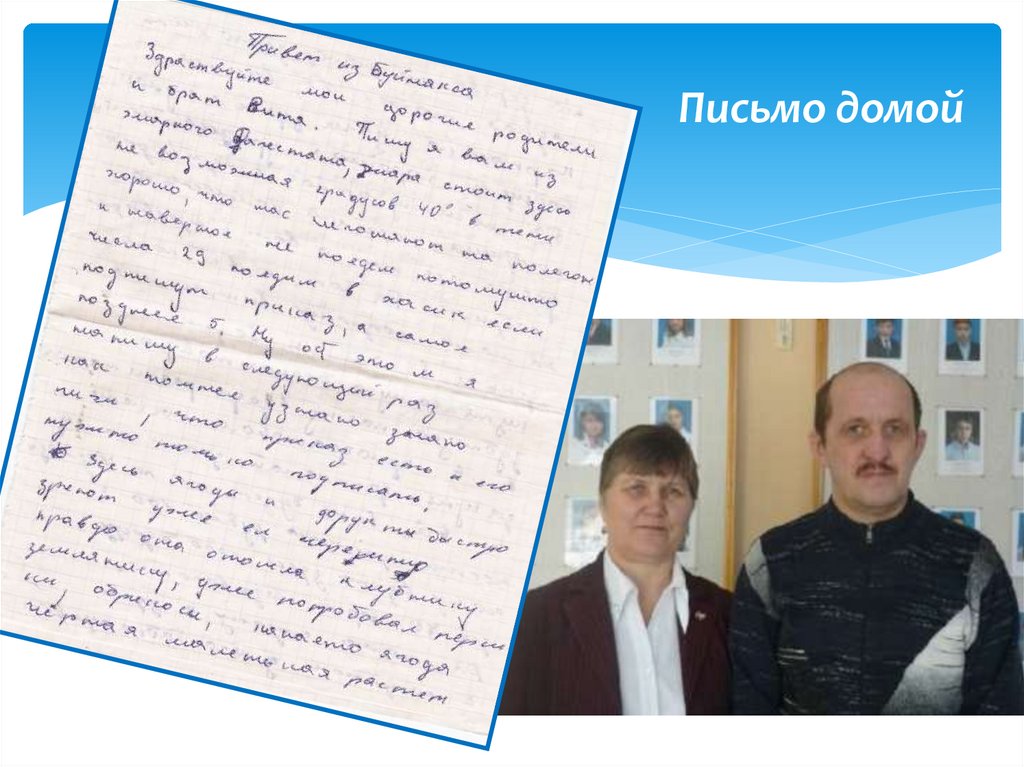 Письмо домой
Привет из Буйнакса
Здраствуйте мои дорогие родители
и брат Витя. Пишу я вам из
жаркого Дагестана, жара стоит здесь
не возможная градусов 40° в тени
хорошо, что нас не гоняют на полегон
и наверное не поедем потомушто
числа 29 поедим в хасик если
подпишут приказ, а самое
позднее 5. Ну об этом я
напишу в следующий раз
как точнее узнаю знаю
что приказ есть и его
нужно только подписать.
Здесь ягоды и фрукты быстро
зреют уже ел черешню
правда она отошла клубнику
землянику, уже попробовал перси
ки, обрикосы, какаето ягода
чёрная маленькая растет